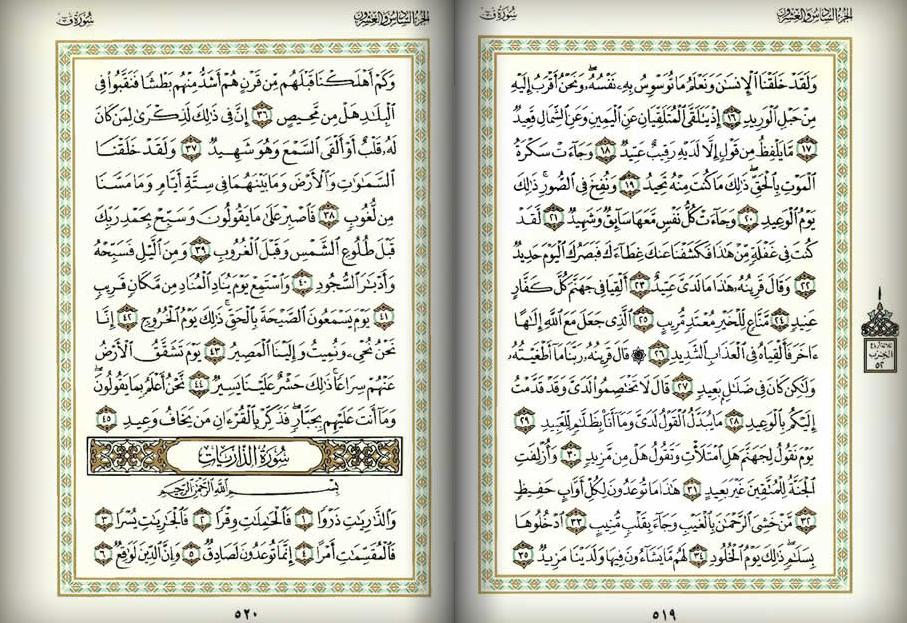 الجزء السادس والعشرون
سورة ق
وَلَقَدْ خَلَقْنَا ٱلْإِنسَٰنَ وَنَعْلَمُ مَا تُوَسْوِسُ بِهِۦ نَفْسُهُۥۖ وَنَحْنُ أَقْرَبُ إِلَيْهِ
مِنْ حَبْلِ ٱلْوَرِيدِ ١٦ إِذْ يَتَلَقَّى ٱلْمُتَلَقِّيَانِ عَنِ ٱلْيَمِينِ وَعَنِ ٱلشِّمَالِ قَعِيدٌ
١٧ مَّا يَلْفِظُ مِن قَوْلٍ إِلَّا لَدَيْهِ رَقِيبٌ عَتِيدٌ ١٨ وَجَآءَتْ سَكْرَةُ
ٱلْمَوْتِ بِٱلْحَقِّۖ ذَٰلِكَ مَا كُنتَ مِنْهُ تَحِيدُ ١٩ وَنُفِخَ فِى ٱلصُّورِۚ ذَٰلِكَ
يَوْمُ ٱلْوَعِيدِ ٢٠ وَجَآءَتْ كُلُّ نَفْسٍ مَّعَهَا سَآئِقٌ وَشَهِيدٌ ٢١ لَّقَدْ
كُنتَ فِى غَفْلَةٍ مِّنْ هَٰذَا فَكَشَفْنَا عَنكَ غِطَآءَكَ فَبَصَرُكَ ٱلْيَوْمَ حَدِيدٌ
٢٢ وَقَالَ قَرِينُهُۥ هَٰذَا مَا لَدَىَّ عَتِيدٌ ٢٣ أَلْقِيَا فِى جَهَنَّمَ كُلَّ كَفَّارٍ
عَنِيدٍ ٢٤ مَّنَّاعٍ لِّلْخَيْرِ مُعْتَدٍ مُّرِيبٍ ٢٥ ٱلَّذِى جَعَلَ مَعَ ٱللَّهِ إِلَٰهًا
ءَاخَرَ فَأَلْقِيَاهُ فِى ٱلْعَذَابِ ٱلشَّدِيدِ ٢٦ ۞ قَالَ قَرِينُهُۥ رَبَّنَا مَآ أَطْغَيْتُهُۥ
وَلَٰكِن كَانَ فِى ضَلَٰلٍۭ بَعِيدٍ ٢٧ قَالَ لَا تَخْتَصِمُوا۟ لَدَىَّ وَقَدْ قَدَّمْتُ
إِلَيْكُم بِٱلْوَعِيدِ ٢٨ مَا يُبَدَّلُ ٱلْقَوْلُ لَدَىَّ وَمَآ أَنَا۠ بِظَلَّٰمٍ لِّلْعَبِيدِ ٢٩
يَوْمَ نَقُولُ لِجَهَنَّمَ هَلِ ٱمْتَلَأْتِ وَتَقُولُ هَلْ مِن مَّزِيدٍ ٣٠ وَأُزْلِفَتِ
ٱلْجَنَّةُ لِلْمُتَّقِينَ غَيْرَ بَعِيدٍ ٣١ هَٰذَا مَا تُوعَدُونَ لِكُلِّ أَوَّابٍ حَفِيظٍ
٣٢ مَّنْ خَشِىَ ٱلرَّحْمَٰنَ بِٱلْغَيْبِ وَجَآءَ بِقَلْبٍ مُّنِيبٍ ٣٣ ٱدْخُلُوهَا
بِسَلَٰمٍۖ ذَٰلِكَ يَوْمُ ٱلْخُلُودِ ٣٤ لَهُم مَّا يَشَآءُونَ فِيهَا وَلَدَيْنَا مَزِيدٌ ٣٥
الحزب
٥٢
٥١٩
الجزء السادس والعشرون
سورة ق
وَكَمْ أَهْلَكْنَا قَبْلَهُم مِّن قَرْنٍ هُمْ أَشَدُّ مِنْهُم بَطْشًا فَنَقَّبُوا۟ فِى
ٱلْبِلَٰدِ هَلْ مِن مَّحِيصٍ ٣٦ إِنَّ فِى ذَٰلِكَ لَذِكْرَىٰ لِمَن كَانَ
لَهُۥ قَلْبٌ أَوْ أَلْقَى ٱلسَّمْعَ وَهُوَ شَهِيدٌ ٣٧ وَلَقَدْ خَلَقْنَا
ٱلسَّمَٰوَٰتِ وَٱلْأَرْضَ وَمَا بَيْنَهُمَا فِى سِتَّةِ أَيَّامٍ وَمَا مَسَّنَا
مِن لُّغُوبٍ ٣٨ فَٱصْبِرْ عَلَىٰ مَا يَقُولُونَ وَسَبِّحْ بِحَمْدِ رَبِّكَ
قَبْلَ طُلُوعِ ٱلشَّمْسِ وَقَبْلَ ٱلْغُرُوبِ ٣٩ وَمِنَ ٱلَّيْلِ فَسَبِّحْهُ
وَأَدْبَٰرَ ٱلسُّجُودِ ٤٠ وَٱسْتَمِعْ يَوْمَ يُنَادِ ٱلْمُنَادِ مِن مَّكَانٍ قَرِيبٍ
٤١ يَوْمَ يَسْمَعُونَ ٱلصَّيْحَةَ بِٱلْحَقِّۚ ذَٰلِكَ يَوْمُ ٱلْخُرُوجِ ٤٢ إِنَّا
نَحْنُ نُحْىِۦ وَنُمِيتُ وَإِلَيْنَا ٱلْمَصِيرُ ٤٣ يَوْمَ تَشَقَّقُ ٱلْأَرْضُ
عَنْهُمْ سِرَاعًاۚ ذَٰلِكَ حَشْرٌ عَلَيْنَا يَسِيرٌ ٤٤ نَّحْنُ أَعْلَمُ بِمَا يَقُولُونَۖ
وَمَآ أَنتَ عَلَيْهِم بِجَبَّارٍۖ فَذَكِّرْ بِٱلْقُرْءَانِ مَن يَخَافُ وَعِيدِ ٤٥
سورة الذاريات
بسم الله الرحمن الرحيم
وَٱلذَّٰرِيَٰتِ ذَرْوًا ١ فَٱلْحَٰمِلَٰتِ وِقْرًا ٢ فَٱلْجَٰرِيَٰتِ يُسْرًا ٣
فَٱلْمُقَسِّمَٰتِ أَمْرًا ٤ إِنَّمَا تُوعَدُونَ لَصَادِقٌ ٥ وَإِنَّ ٱلدِّينَ لَوَٰقِعٌ ٦
٥٢٠